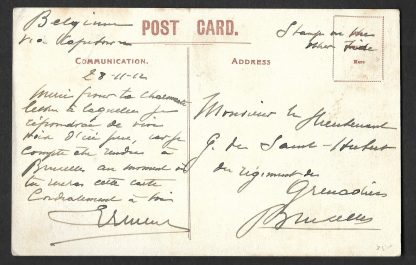 Belgium
via Kapstown
POST CARD.
Stamp on the
other side
Here
COMMUNICATION.
ADDRESS
28-11-12
Merci pour ta charmante
lettre à laquelle je
répondrai de vive
voix d'ici peu, car je
compte être rendu à
Bruxelles au moment où
tu liras cette carte
Cordialement à toi
Monsieur le Lieutenant
G. de Saint-Hubert
du régiment des
Grenadiers
Bruxelles